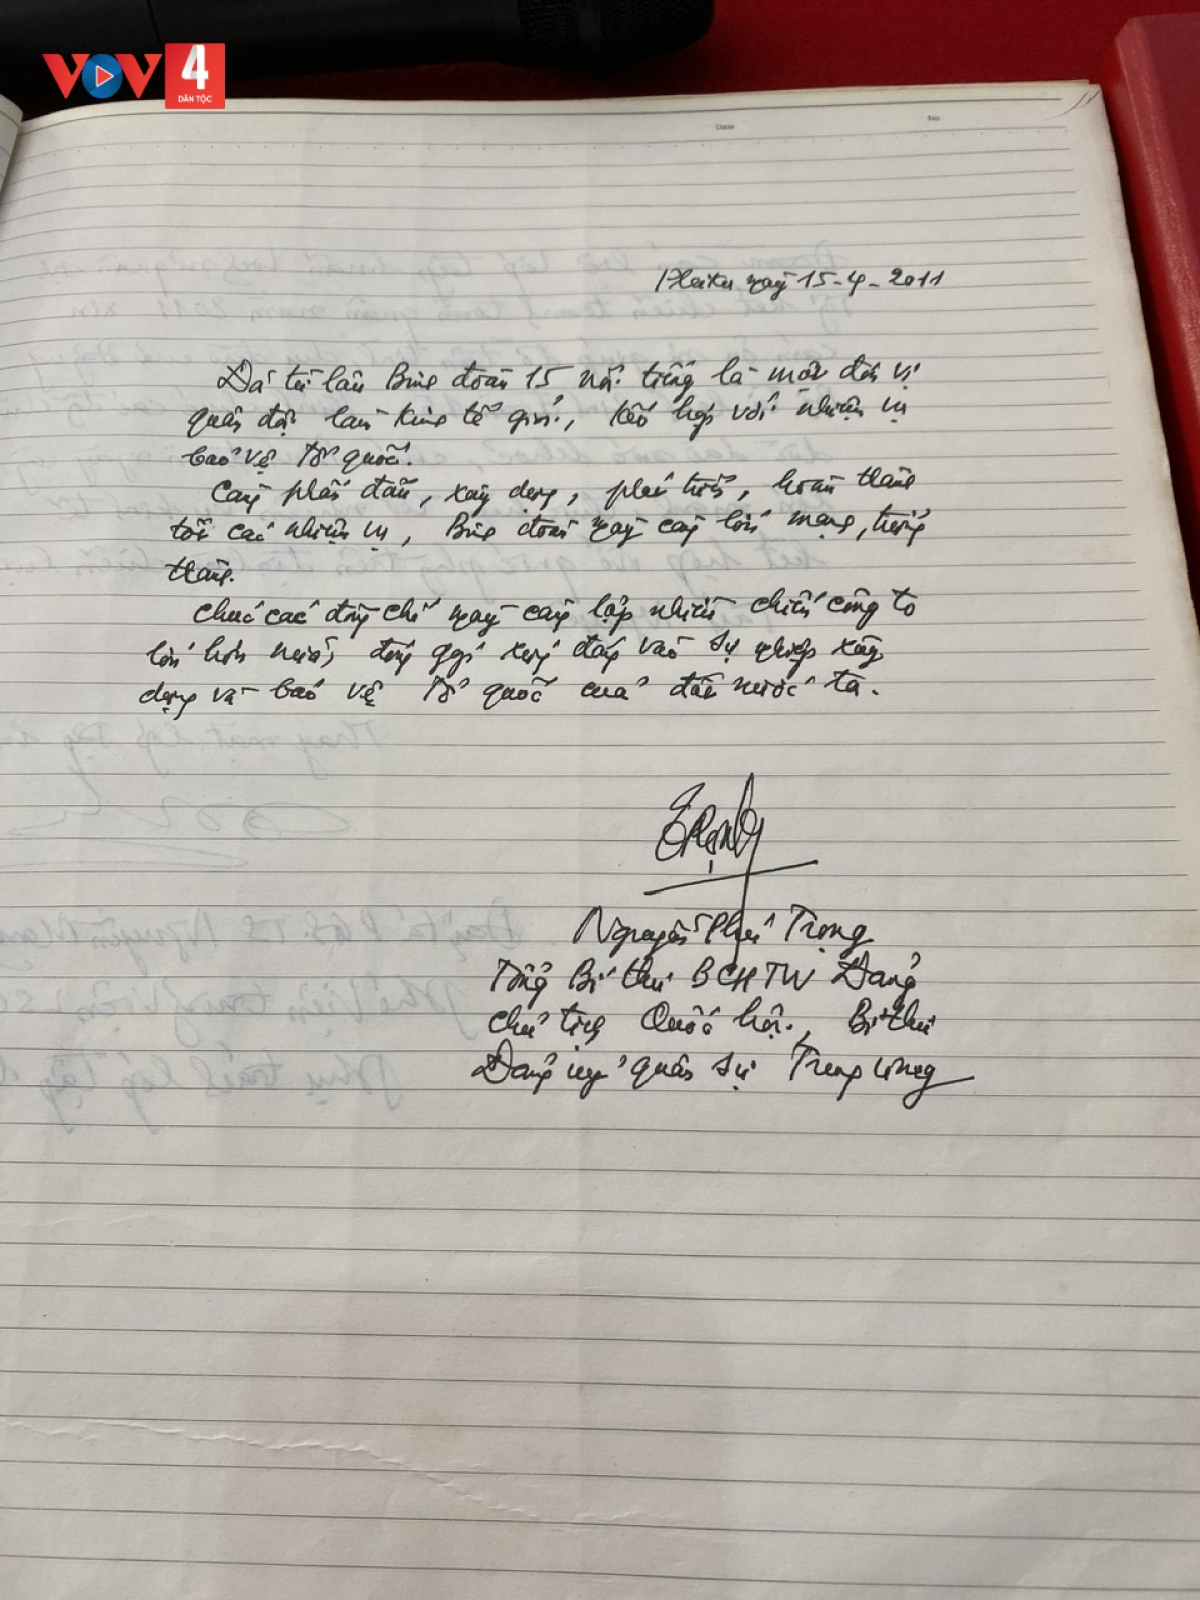 VOV4
DÂN TỘC
Date
No.
Pleiku ngày 15-4-2011
Đã từ lâu Binh đoàn 15 nổi tiếng là một đơn vị
quân đội làm kinh tế giỏi, kết hợp với nhiệm vụ
bảo vệ Tổ quốc.
Càng phấn đấu, xây dựng, phát triển, hoàn thành
tốt các nhiệm vụ, Binh đoàn ngày càng lớn mạnh, trưởng
thành.
Chúc các đồng chí ngày càng lập nhiều chiến công to
lớn hơn nữa, đóng góp xứng đáng vào sự nghiệp xây
dựng và bảo vệ Tổ quốc của đất nước ta.
Nguyễn Phú Trọng
Tổng Bí thư BCHTW Đảng
Chủ tịch Quốc hội, Bí thư
Đảng uỷ quân sự Trung ương